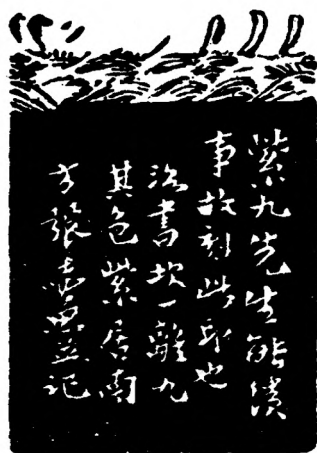 紫九先生能繢
事故刻此印也
洛書坎一離九
其色紫居南
方張壽丞記